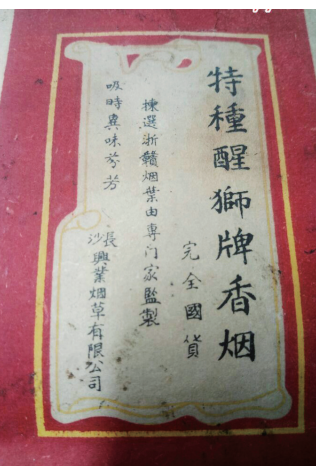 特種醒獅牌香烟
完全國貨
揀選浙贛烟葉由専门家監製
吸時異味芬芳
長沙興業烟草有限公司